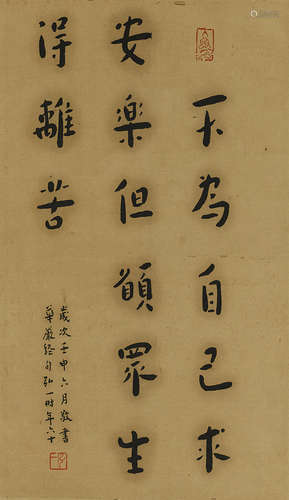 不為自己求
安樂但願眾生
得離苦
歲次壬申六月敬書
華嚴經句弘一时年六十